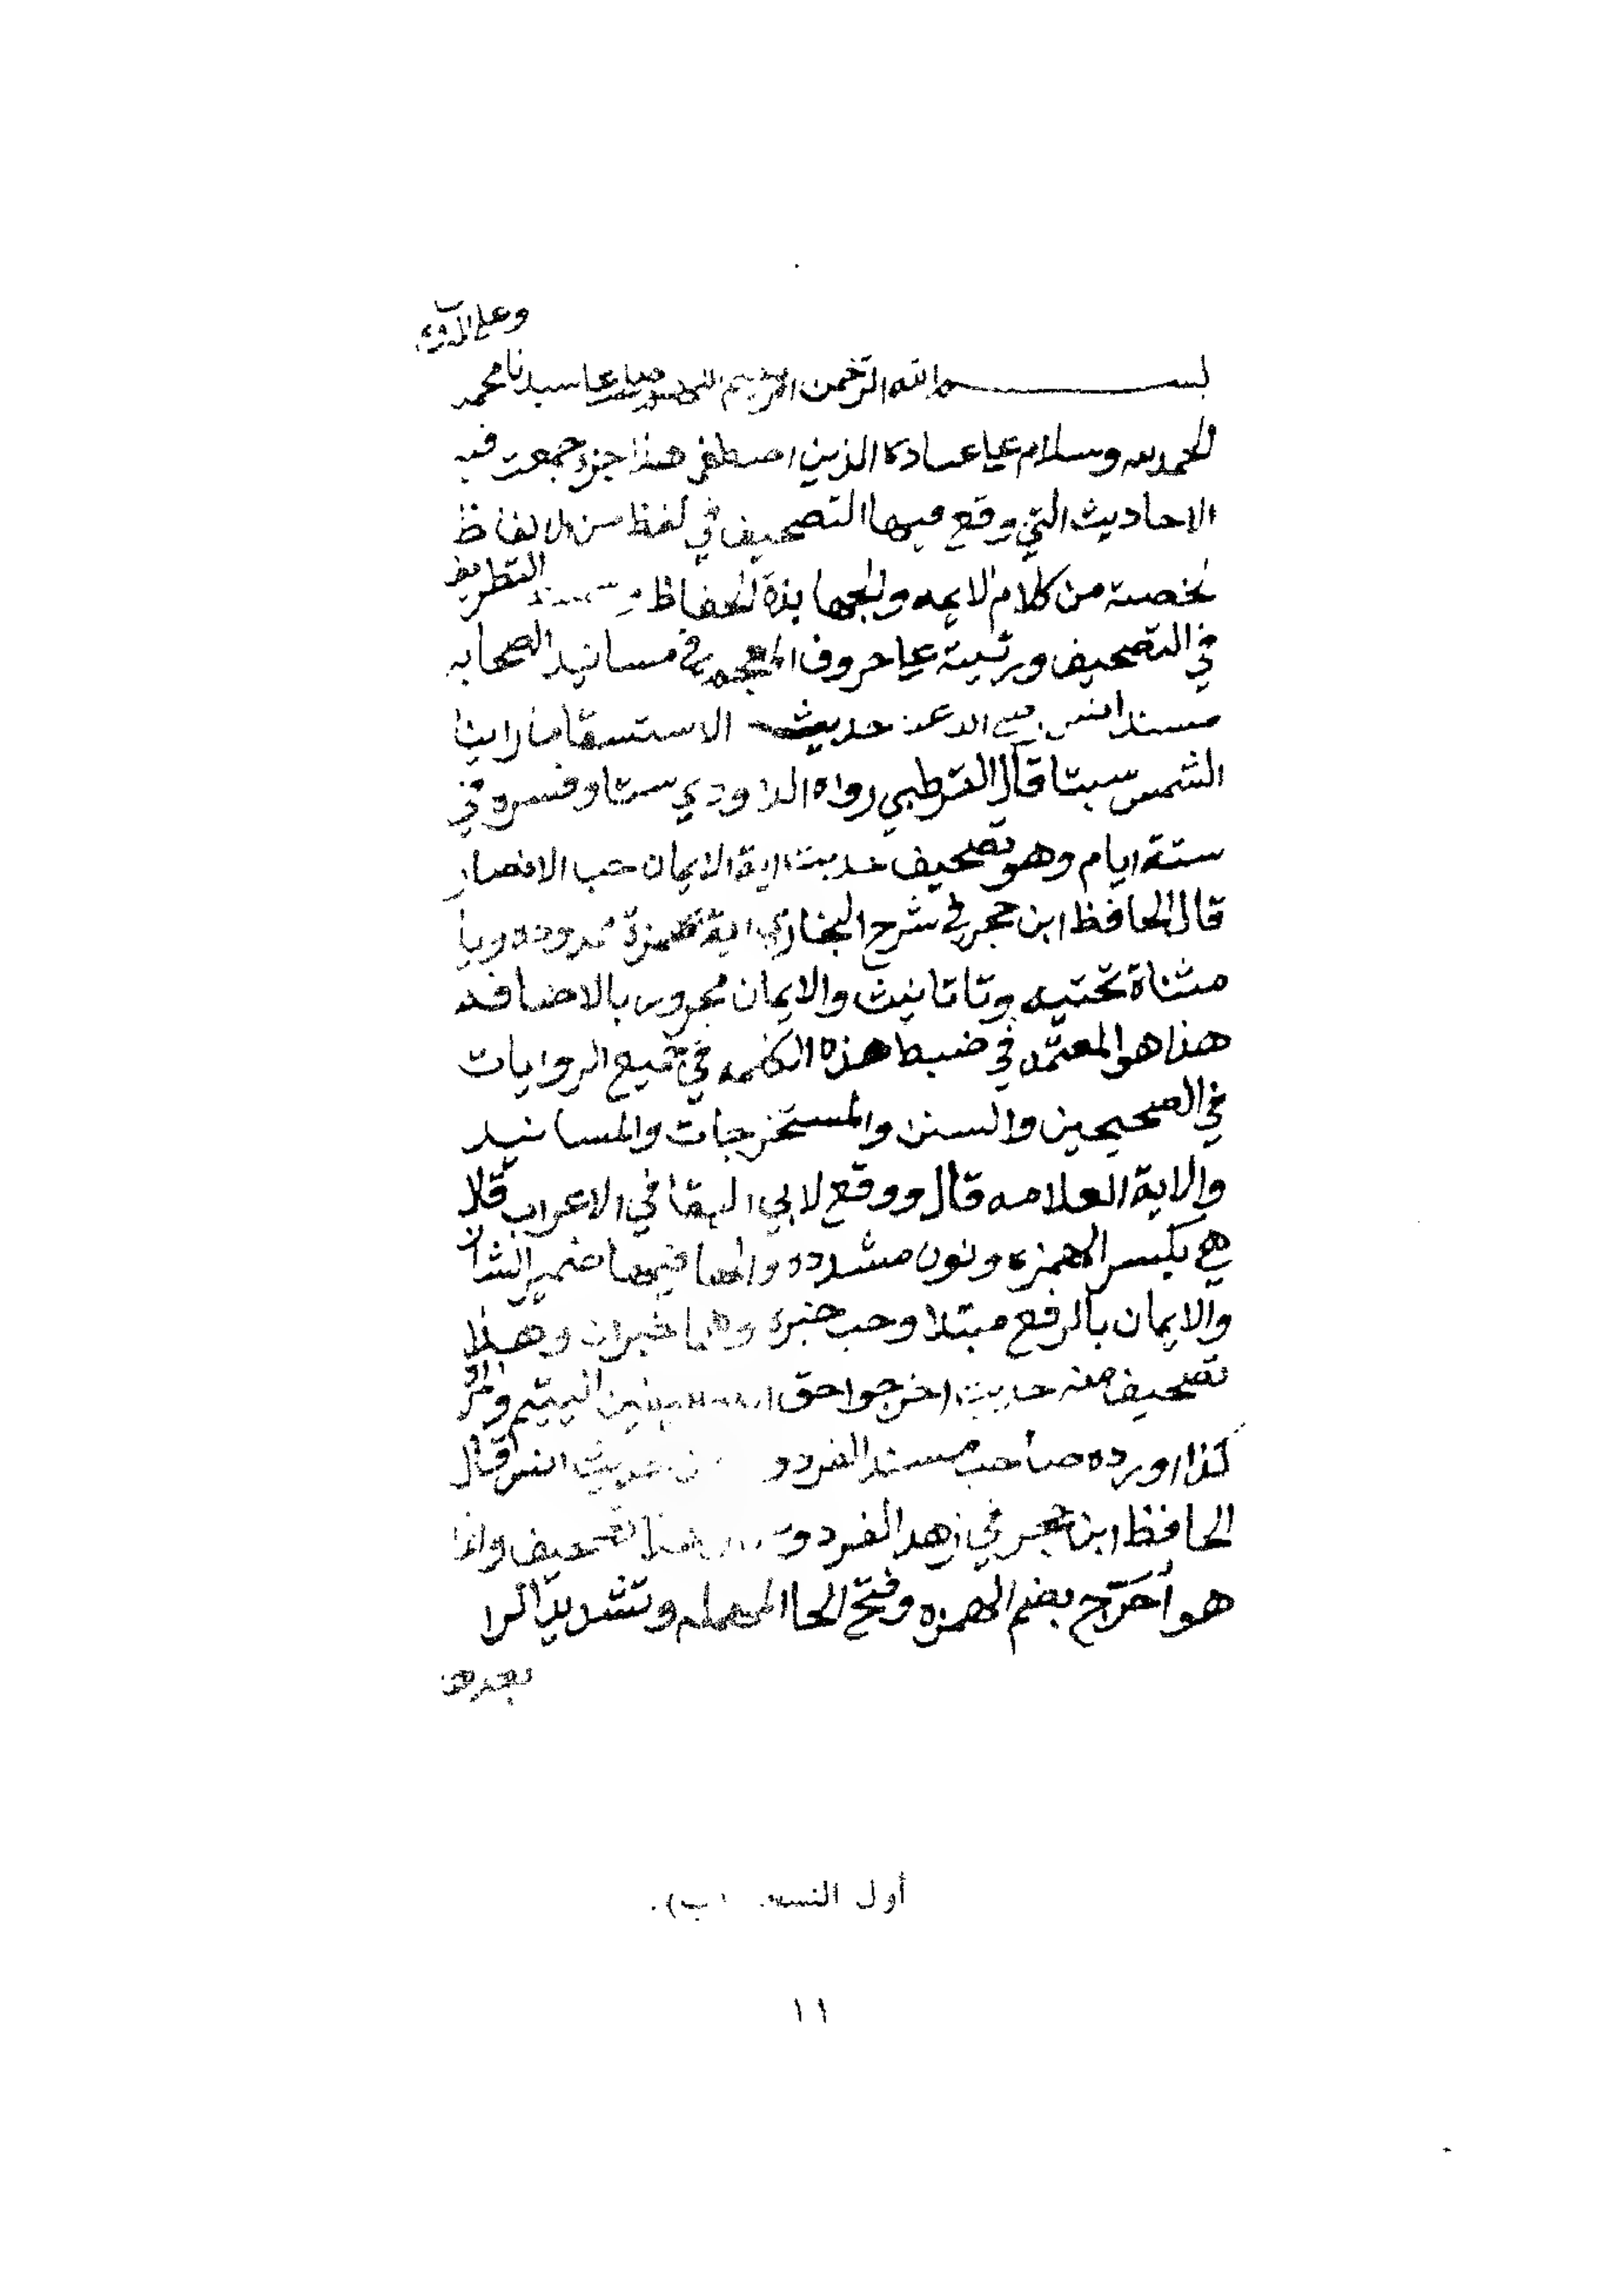 وعلى اله
بسم الله الرحمن الرحيم اللهم صل على سيدنا محمد
الحمد لله وسلام على عباده الذين اصطفى هذا جزء جمعت فيه
الاحاديث التي وقع فيها التصحيف في لفظ من الالفاظ
لخصته من كلام الايمه والجهابذة الحفاظ وسميته التطريف
في التصحيف ورتبته على حروف المعجم في مسانيد الصحابه
مسند انس رضي الله عنه حديث الاستسقا ما راينا
الشمس سبتا قال القرطبي رواه الداودي ستا وفسره في
ستة ايام وهو تصحيف حديث اية الايمان حب الانصار
قال الحافظ ابن حجر في شرح البخاري اية بهمزة ممدوده ويا
مثناة تحتيه وتا تانيث والايمان مجرور بالاضافه
هذا هو المعتمد في ضبط هذه الكلمه في جميع الروايات
في الصحيحين والسنن والمستخرجات والمسانيد
والاية العلامه قال ووقع لابي البقا في الاعراب قلا
هي بكسر الهمزه ونون مشدده والها فيها ضمير الشان
والايمان بالرفع مبتدا وحب خبره وهما خبران وهذا
تصحيف منه حديث اخرجوا حق اليتيم والمراة
كذا اورده صاحب مسند الفردو من حديث انس قال
الحافظ ابن حجر في زهر الفردوس هذا تصحيف وانما
هو أحَرّج بضم الهمزه وفتح الحا المهمله وتشديد الرا
بعدها
أول النسخة (ب).
١١